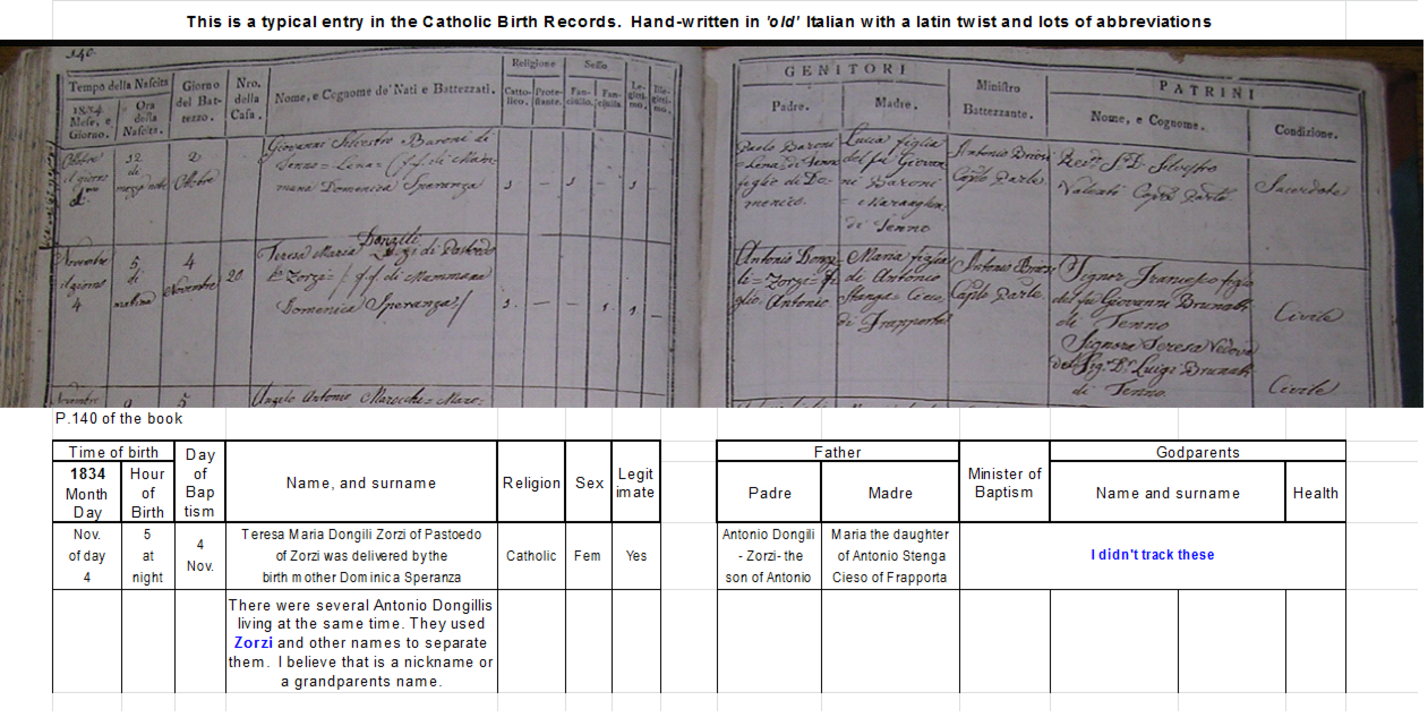 This is a typical entry in the Catholic Birth Records. Hand-written in 'old' Italian with a latin twist and lots of abbreviations
140.
Tempo della Nascita
1834.
Mese, e
Giorno.
Ora
della
Nascita.
Giorno
del Bat-
tezzo.
Nro.
della
Casa.
Nome, e Cognome de' Nati e Battezzati.
Religione
Catto-
lico.
Prote-
stante.
Sesso
Fan-
ciullo.
Fan-
ciulla.
Le-
gitti-
mo.
Ille-
gitti-
mo.
GENITORI
Padre.
Madre.
Ministro
Battezzante.
PATRINI
Nome, e Cognome.
Condizione.
Ottobre
il giorno
12
di
mezza notte
2
Ottobre
Giovanni Silvestro Baroni di
Tenno = Lena = /f.f. di Mam
mana Domenica Speranza
1 — 1 — 1 —
Paolo Baroni
= Lena di Tenno
figlio di Do-
menico.
Lucia figlia
del fu Giovan
ni Baroni
= Maranghon
di Tenno
Antonio Briosi
Silvestro
Valenti
Sacerdote
Novembre
il giorno
4
5
di
mattina
4
Novembre
20
Donzili
Teresa Maria di Pastoedo
Zorzi = / f.f. di Mammana
Domenica Speranza /
1. — — 1. 1. —
Antonio Donzi
li = Zorzi = fi
glio Antonio
Maria figlia
di Antonio
Stanga
di Frapporta
Antonio Briosi
Signor Francesco figlio
del fu Giovanni Brunatti
di Tenno
Signora Teresa Vedova
del Sig.r D.r Luigi Brunatti
di Tenno.
Civile
Civile
Novembre
9
5
Angelo Antonio
P.140 of the book
Time of birth
1834
Month
Day
Hour
of
Birth
Day
of
Bap
tism
Name, and surname
Religion
Sex
Legit
imate
Father
Padre
Madre
Minister of
Baptism
Godparents
Name and surname
Health
Nov.
of day
4
5
at
night
4
Nov.
Teresa Maria Dongili Zorzi of Pastoedo
of Zorzi was delivered by the
birth mother Dominica Speranza
Catholic
Fem
Yes
Antonio Dongili
- Zorzi- the
son of Antonio
Maria the daughter
of Antonio Stenga
Cieso of Frapporta
I didn't track these
There were several Antonio Dongillis
living at the same time. They used
Zorzi and other names to separate
them. I believe that is a nickname or
a grandparents name.